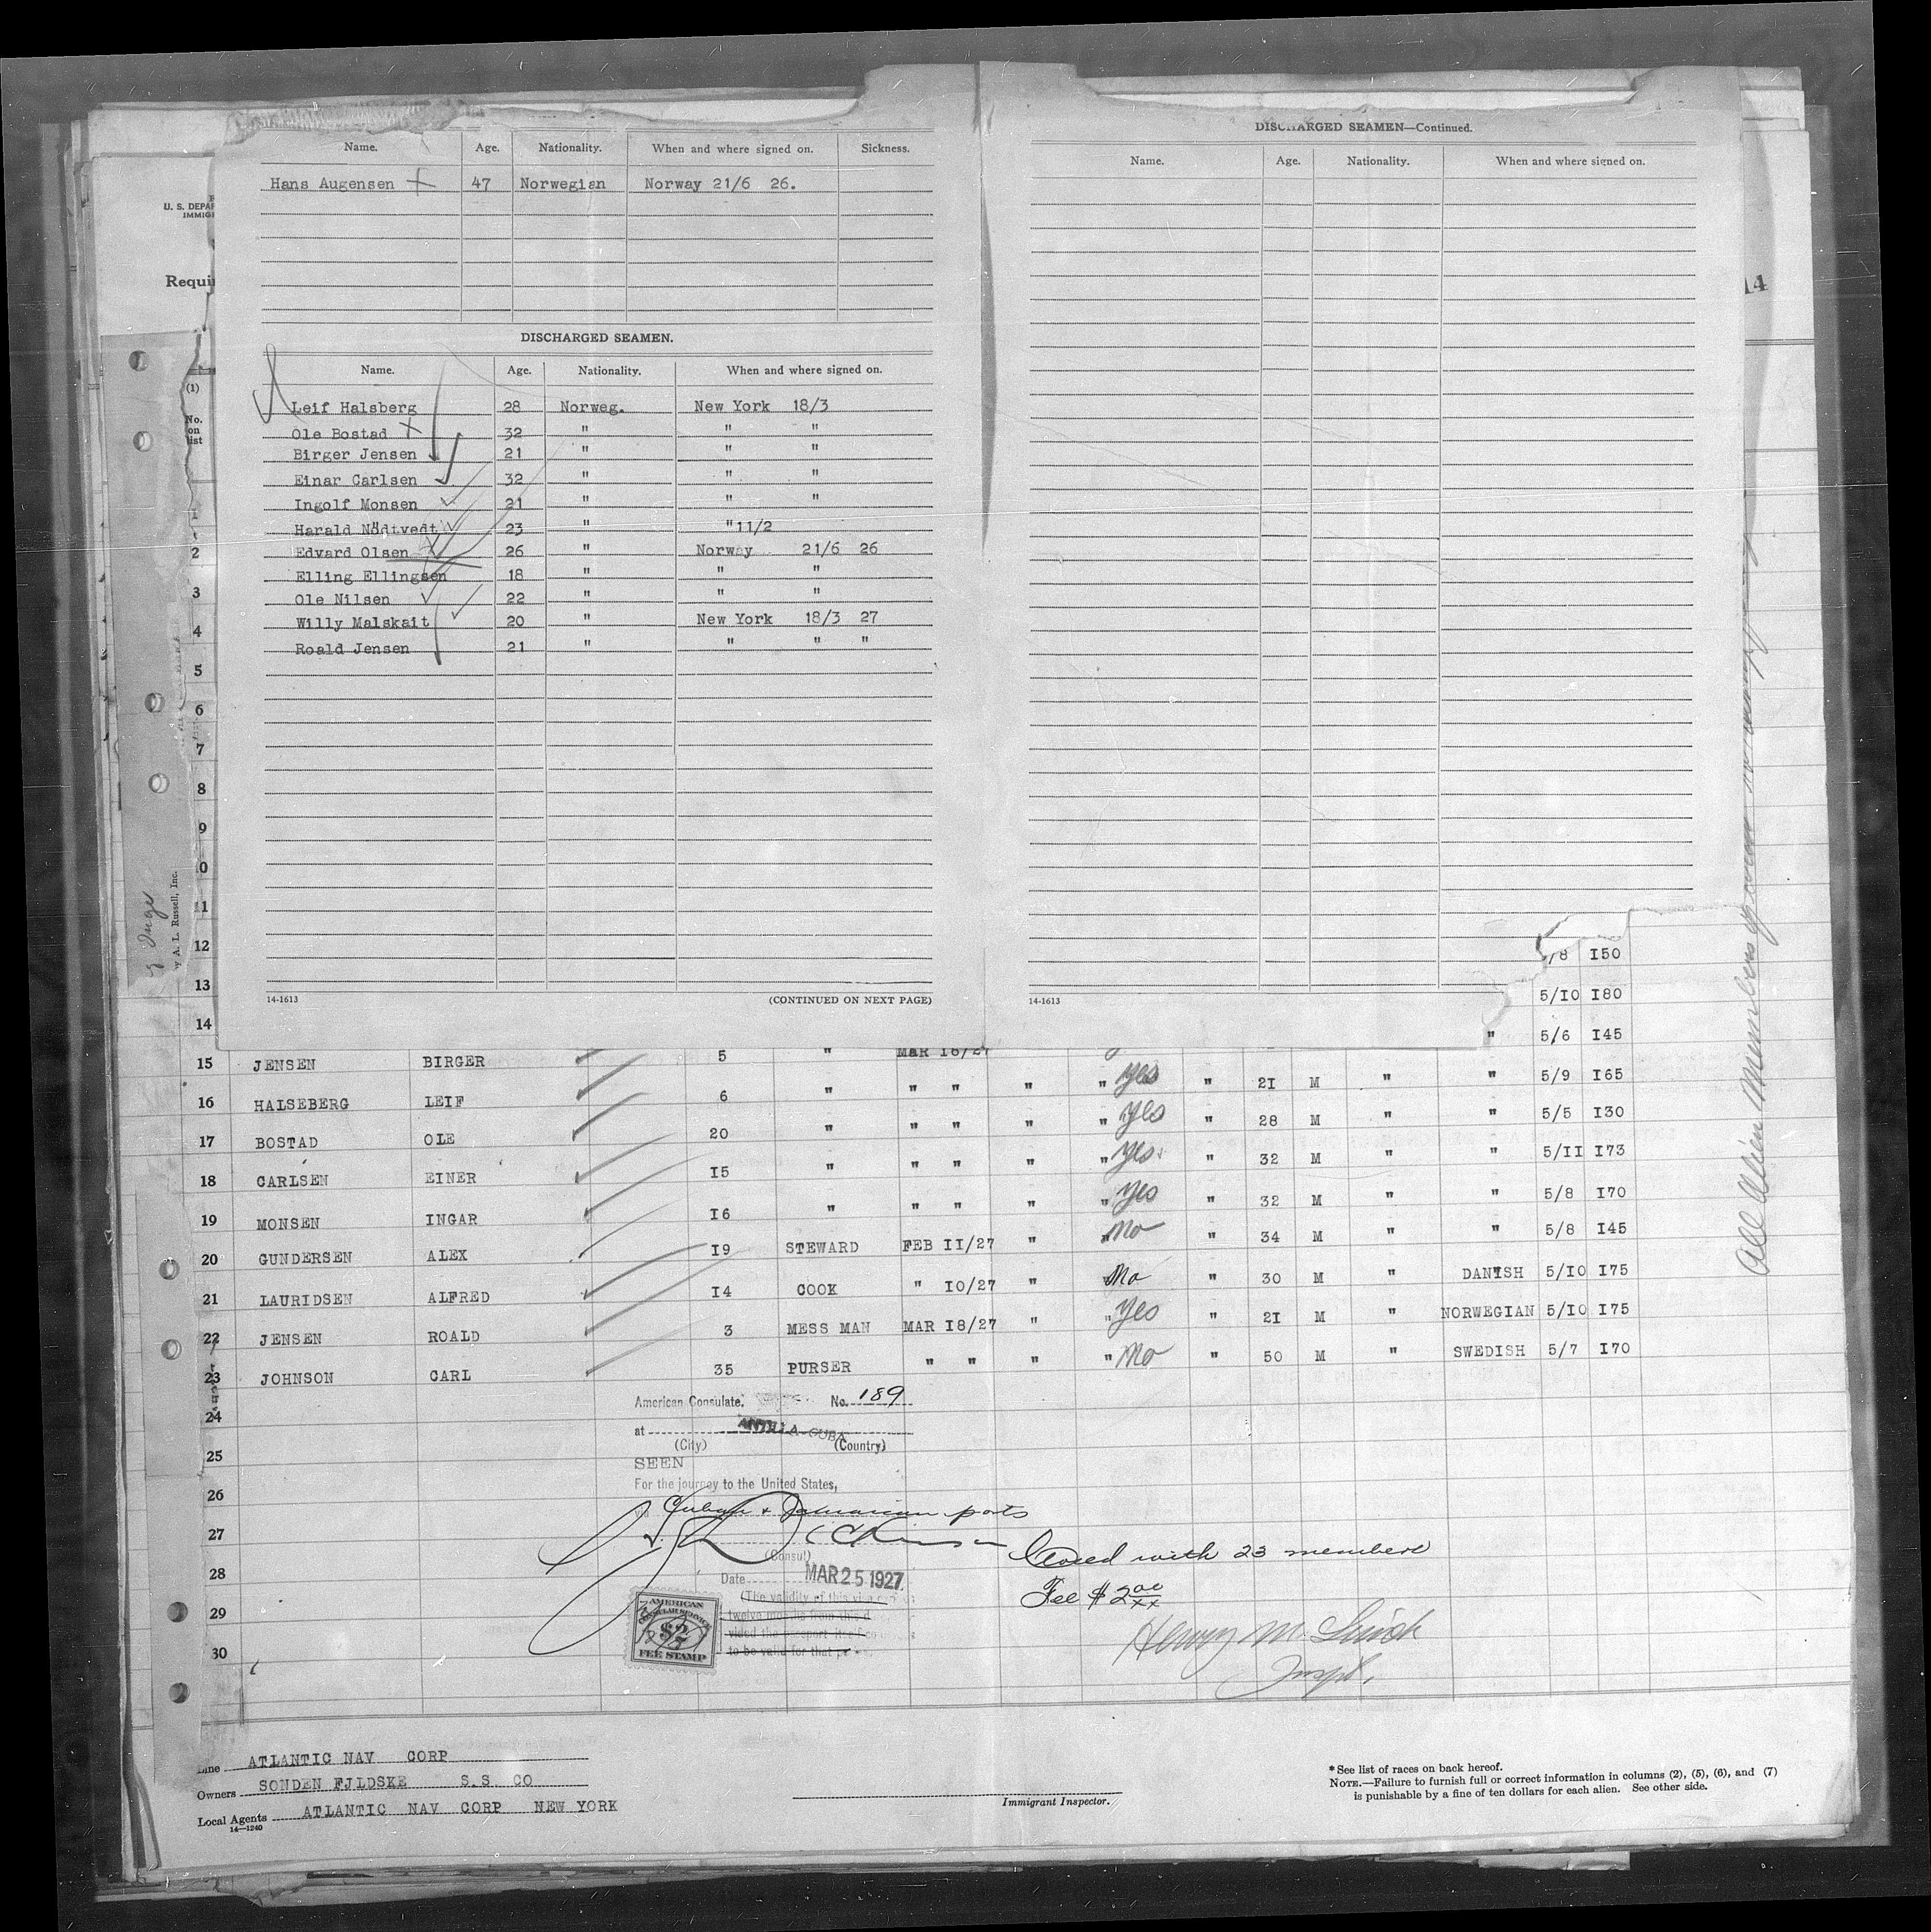 Name. Age. Nationality. When and where signed on. Sickness.
Hans Augensen 47 Norwegian Norway 21/6 26.
DISCHARGED SEAMEN.
Name. Age. Nationality. When and where signed on.
Leif Halsberg 28 Norweg. New York 18/3
Ole Bostad 32 " " "
Birger Jensen 21 " " "
Einar Carlsen 32 " " "
Ingolf Monsen 21 " " "
Harald Nödtvedt 23 " " 11/2
Edvard Olsen 26 " Norway 21/6 26
Elling Ellingsen 18 " " "
Ole Nilsen 22 " " "
Willy Malskait 20 " New York 18/3 27
Roald Jensen 21 " " " "
14-1613 (CONTINUED ON NEXT PAGE)
DISCHARGED SEAMEN—Continued.
Name. Age. Nationality. When and where signed on.
14-1613
U. S. DEPAR
IMMIG
Requi
14
(1)
No.
on
list
1
2
3
4
5
6
7
8
9
10
11
12 5/8 150
13 5/10 180
14 " 5/6 145
15 JENSEN BIRGER 5 " MAR 18/27 " " yes " 21 M " " 5/9 165
16 HALSEBERG LEIF 6 " " " " " yes " 28 M " " 5/5 130
17 BOSTAD OLE 20 " " " " " yes " 32 M " " 5/11 173
18 CARLSEN EINER 15 " " " " " yes " 32 M " " 5/8 170
19 MONSEN INGAR 16 " " " " " No " 34 M " " 5/8 145
20 GUNDERSEN ALEX 19 STEWARD FEB 11/27 "
21 LAURIDSEN ALFRED 14 COOK " 10/27 " No " 30 M " DANISH 5/10 175
22 JENSEN ROALD 3 MESS MAN MAR 18/27 " " yes " 21 M " NORWEGIAN 5/10 175
23 JOHNSON CARL 35 PURSER " " " " No " 50 M " SWEDISH 5/7 170
24
25
26
27
28
29
30
American Consulate, No. 189
at ANTILLA-CUBA
(City) (Country)
SEEN
For the journey to the United States,
Cuban & Jamaican ports
(Consul)
Date MAR 25 1927
(The validity of this visa
twelve months from this d
vided the passport itself co
to be valid for that pe
AMERICAN
CONSULAR SERVICE
$2
FEE STAMP
Closed with 23 members
Fee $2 00/xx
Henry M.
Inspt.
All Alien Members
Inge
A. L. Russell, Inc.
Line ATLANTIC NAV CORP
Owners SONDEN FJLDSKE S.S. CO
Local Agents ATLANTIC NAV CORP NEW YORK
14—1240
Immigrant Inspector.
* See list of races on back hereof.
NOTE.—Failure to furnish full or correct information in columns (2), (5), (6), and (7)
is punishable by a fine of ten dollars for each alien. See other side.